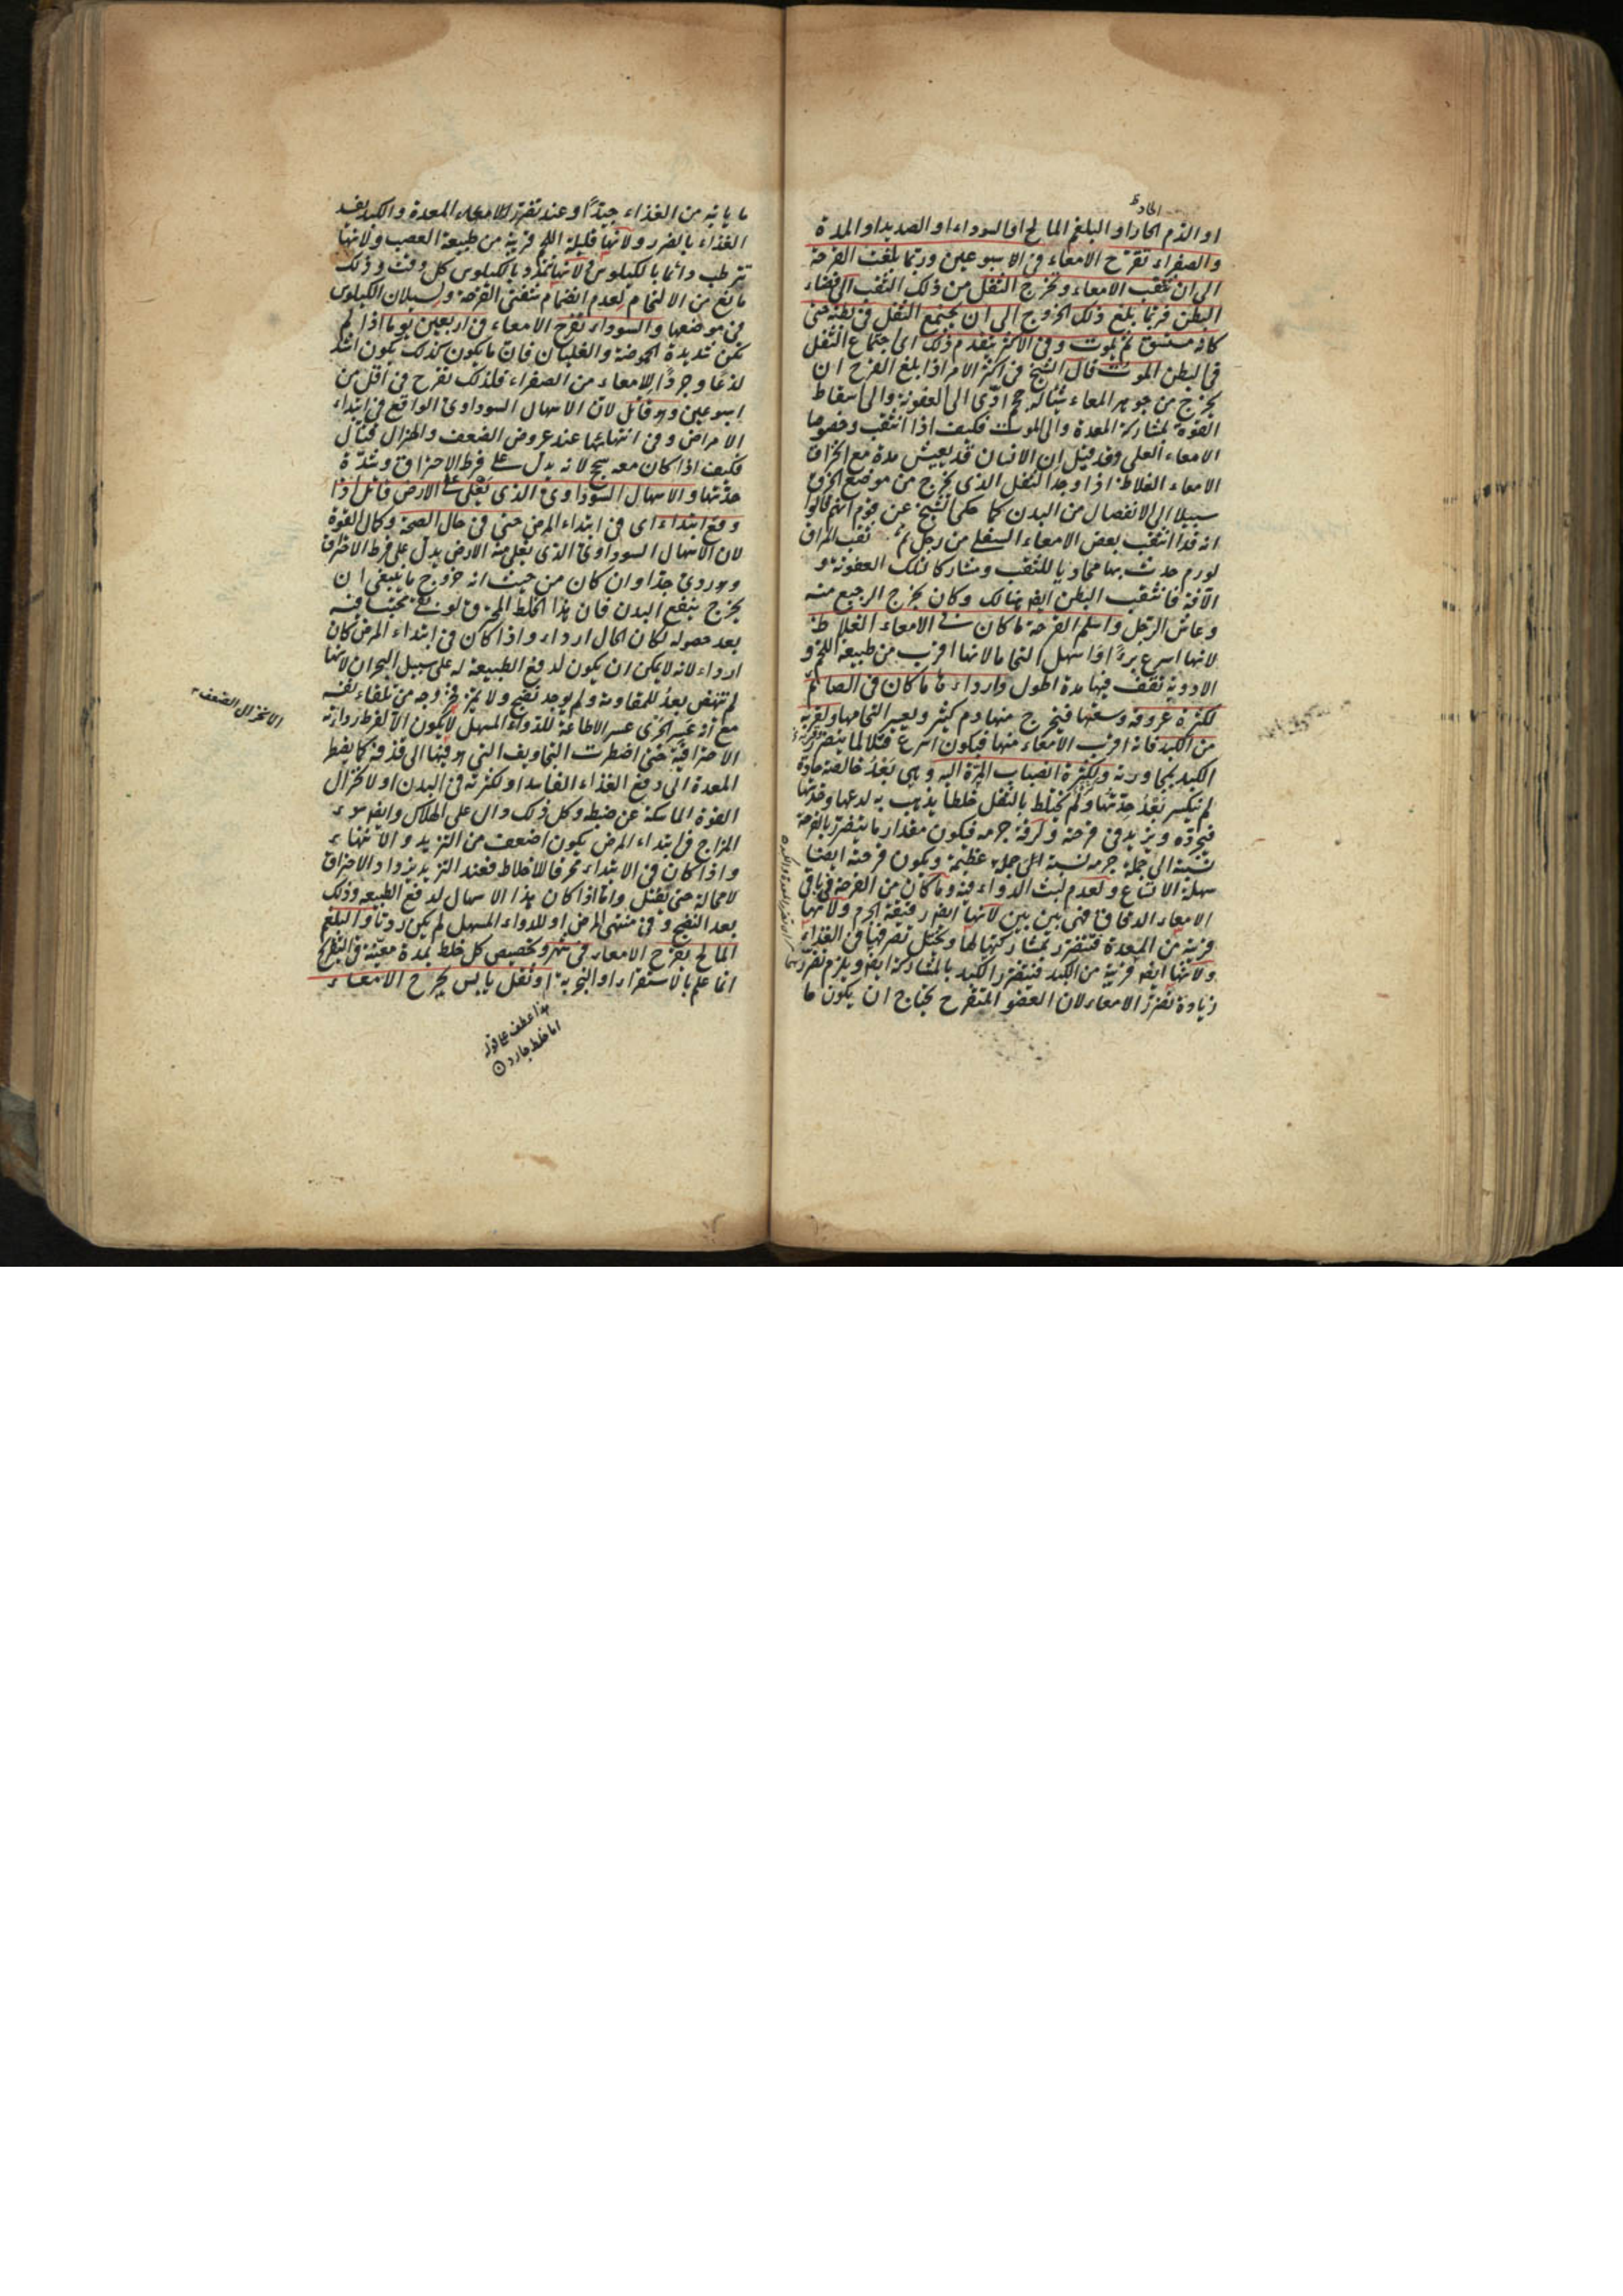 الحادة
او الدم الحار او البلغم المالح او السوداء او الصديد او المدة
والصفراء تقرح الامعاء فى الاسبوعين وربما بلغت القرحة
الى ان تثقب الامعاء وتخرج الثفل من ذلك الثقب الى فضاء
البطن فربما بلغ ذلك الخروج الى ان يجتمع الثفل فى بطنه حتى
كانه مستسق ثم يموت وفى الاكثر يتقدم ذلك اى اجتماع الثفل
فى البطن الموت قال الشيخ فى اكثر الامر اذا بلغ القرح ان
يخرج من جوهر المعاء شيئا له حجم ادى الى العفونة والى اسقاط
القوة لمشاركة المعدة والى الموت فكيف اذا انثقب وخصوصا
الامعاء العلى وقد قيل ان الانسان قد يعيش مدة مع انخراق
الامعاء الغلاظ اذا وجد الثفل الذى يخرج من موضع الخرق
سبيلا الى الانفصال من البدن كما حكى الشيخ عن قوم انهم قالوا
انه قد انثقب بعض الامعاء السفلى من رجل ثم ثقب المراق
لورم حدث بها محاذيا للثقب ومشاركا لتلك العفونة و
الآفة فانثقب البطن ايضا هنالك وكان يخرج الرجيع منه
وعاش الرجل واسلم القرحة ما كان فى الامعاء الغلاظ
لانها اسرع برءا واسهل التحاما لانها اقرب من طبيعة اللحم و
الادوية تقف فيها مدة اطول وارداءها ما كان فى الصائم
لكثرة عروقه وسعتها فيخرج منها دم كثير ويعسر التحامها ولقربه
من الكبد فانه اقرب الامعاء منها فيكون اسرع قتلا لما يتضرر
الكبد بمجاورته ولكثرة انصباب المرة اليه وهى بعد خالصة حادة
لم تنكسر بعد حدتها ولم تختلط بالثفل خلطا يذهب به لدعها وحدتها
فيجرده ويزيد فى قرحته ولرقة جرمه فيكون مقدار ما يتضرر بالقرحة
نسبته الى جملة جرمه نسبة الى جملة عظيمة ويكون قرحته ايضا
سهلة الاتساع ولعدم لبث الدواء فيه وما كان من القرحة فى باقى
الامعاء الدقاق فهى بين بين لانها ايضا رقيقة الجرم ولانها
قريبة من المعدة فتتضرر بمشاركتها لها ويختل تصرفها فى الغذاء
ولانها ايضا قريبة من الكبد فتتضرر الكبد بالمشاركة ايضا ويلزم تضررهما
زيادة تضرر الامعاء لان العضو المتقرح يحتاج ان يكون ما
ما ياتيه من الغذاء جيدا وعند تضرر الامعاء المعدة والكبد يفسد
الغذاء بالضرورة ولانها قليلة اللحم قريبة من طبيعة العصب ولانها
تترطب دائما بالكيلوس لانها تمتلئ بالكيلوس كل وقت وذلك
مانع من الالتحام لعدم انضمام شفتى القرحة ولسيلان الكيلوس
فى موضعها والسوداء تقرح الامعاء فى اربعين يوما اذا لم
تكن شديدة الحموضة والغليان فان ما يكون كذلك يكون اشد
لذعا وجردا للامعاء من الصفراء فلذلك تقرح فى اقل من
اسبوعين وهو قاتل لان الاسهال السوداوى الواقع فى ابتداء
الامراض وفى انتهائها عند عروض الضعف والهزال قتال
فكيف اذا كان معه سحج لانه يدل على فرط الاحتراق وشدة
حدتها والاسهال السوداوى الذى تغلى على الارض قاتل اذا
وقع ابتداء اى فى ابتداء المرض حتى فى حال الصحة وكمال القوة
لان الاسهال السوداوى الذى تغلى منه الارض يدل على فرط الاحتراق
وهو ردى جدا وان كان من حيث انه خروج ما ينبغى ان
يخرج ينفع البدن فان هذا الخلط المحترق لو بقى محتبسا فيه
بعد حصوله لكان الحال ارداء واذا كان فى ابتداء المرض كان
ارداء لانه لا يمكن ان يكون لدفع الطبيعة له على سبيل البحران لانها
لم تنهض بعد للمقاومة ولم يوجد نضج ولا تميز فخروجه من تلقاء نفسه
مع انه عسر الجرى عسر الاطاعة للدواء المسهل لا يكون الا لفرط رداءته
الاحتراقية حتى اضطرت التجاويف التى هو فيها الى قذفه كما يضطر
المعدة الى دفع الغذاء الفاسد او لكثرته فى البدن او لانخزال
القوة الماسكة عن ضبطه وكل ذلك دال على الهلاك وايضا سوء
المزاج فى ابتداء المرض يكون اضعف من التزيد والانتهاء
واذا كان فى الابتداء محرقا للاخلاط فعند التزيد يزداد الاحتراق
لا محالة حتى يقتل واما اذا كان هذا الاسهال لدفع الطبيعة وذلك
بعد النضج وفى منتهى المرض او للدواء المسهل لم يكن رديا والبلغم
المالح يقرح الامعاء فى شهر وتخصيص كل خلط بمدة معينة فى التقريح
انما علم بالاستقراء او التجربة او ثفل يابس يجرح الامعاء
هذا عطف على قوله
اما خلط حاد
الانخزال الضعف